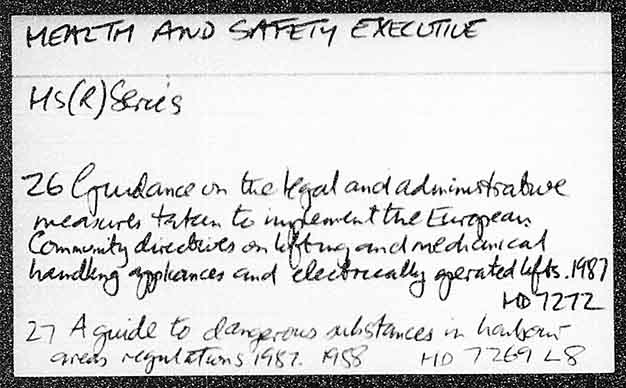 HEALTH AND SAFETY EXECUTIVE
HS(R) Series
26 Guidance on the legal and administrative
measures taken to implement the European
Community directives on lifting and mechanical
handling appliances and electrically operated lifts. 1987
HD 7272
27 A guide to dangerous substances in harbour
areas regulations 1987. 1988 HD 7269 L8